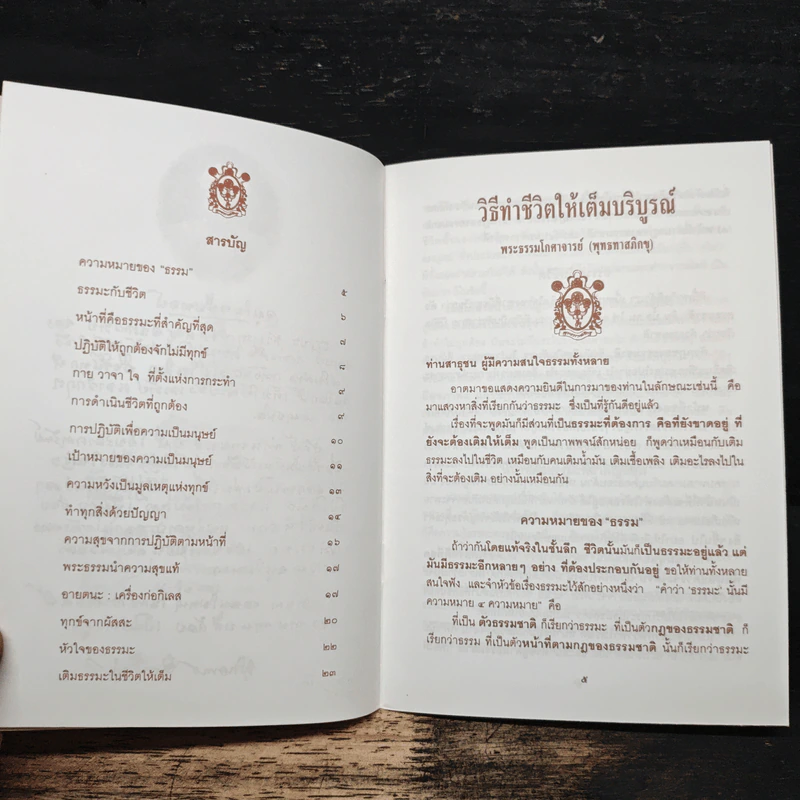 สารบัญ
ความหมายของ "ธรรม" ๕
ธรรมะกับชีวิต ๖
หน้าที่คือธรรมะที่สำคัญที่สุด ๗
ปฏิบัติให้ถูกต้องจักไม่มีทุกข์ ๘
กาย วาจา ใจ ที่ตั้งแห่งการกระทำ ๙
การดำเนินชีวิตที่ถูกต้อง ๙
การปฏิบัติเพื่อความเป็นมนุษย์ ๑๐
เป้าหมายของความเป็นมนุษย์ ๑๑
ความหวังเป็นมูลเหตุแห่งทุกข์ ๑๓
ทำทุกสิ่งด้วยปัญญา ๑๔
ความสุขจากการปฏิบัติตามหน้าที่ ๑๖
พระธรรมนำความสุขแท้ ๑๗
อายตนะ : เครื่องก่อกิเลส ๑๗
ทุกข์จากผัสสะ ๒๐
หัวใจของธรรมะ ๒๒
เติมธรรมะในชีวิตให้เต็ม ๒๓
วิธีทำชีวิตให้เต็มบริบูรณ์
พระธรรมโกศาจารย์ (พุทธทาสภิกขุ)
ท่านสาธุชน ผู้มีความสนใจธรรมทั้งหลาย
อาตมาขอแสดงความยินดีในการมาของท่านในลักษณะเช่นนี้ คือ
มาแสวงหาสิ่งที่เรียกกันว่าธรรมะ ซึ่งเป็นที่รู้กันดีอยู่แล้ว
เรื่องที่จะพูดมันก็มีส่วนที่เป็นธรรมะที่ต้องการ คือที่ยังขาดอยู่ ที่
ยังจะต้องเติมให้เต็ม พูดเป็นภาพพจน์สักหน่อย ก็พูดว่าเหมือนกับเติม
ธรรมะลงไปในชีวิต เหมือนกับคนเติมน้ำมัน เติมเชื้อเพลิง เติมอะไรลงไปใน
สิ่งที่จะต้องเติม อย่างนั้นเหมือนกัน
ความหมายของ "ธรรม"
ถ้าว่ากันโดยแท้จริงในชั้นลึก ชีวิตนั้นมันก็เป็นธรรมะอยู่แล้ว แต่
มันมีธรรมะอีกหลายๆ อย่าง ที่ต้องประกอบกันอยู่ ขอให้ท่านทั้งหลาย
สนใจฟัง และจำหัวข้อเรื่องธรรมะไว้สักอย่างหนึ่งว่า "คำว่า 'ธรรมะ' นั้นมี
ความหมาย ๔ ความหมาย" คือ
ที่เป็น ตัวธรรมชาติ ก็เรียกว่าธรรมะ ที่เป็นตัวกฎของธรรมชาติ ก็
เรียกว่าธรรม ที่เป็นตัวหน้าที่ตามกฎของธรรมชาติ นั้นก็เรียกว่าธรรมะ
๕